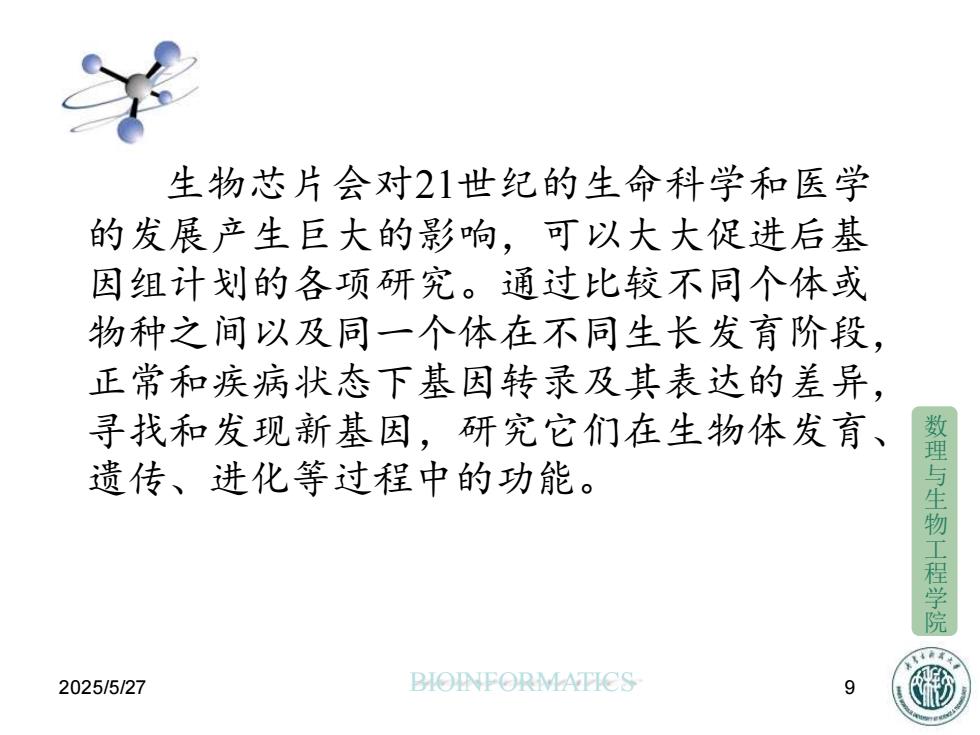 生物芯片会对21世纪的生命科学和医学
的发展产生巨大的影响，可以大大促进后基
因组计划的各项研究。通过比较不同个体或
物种之间以及同一个体在不同生长发育阶段，
正常和疾病状态下基因转录及其表达的差异，
寻找和发现新基因，研究它们在生物体发育、
遗传、进化等过程中的功能。
数理与生物工程学院
2025/5/27
BIOINFORMATICS
9